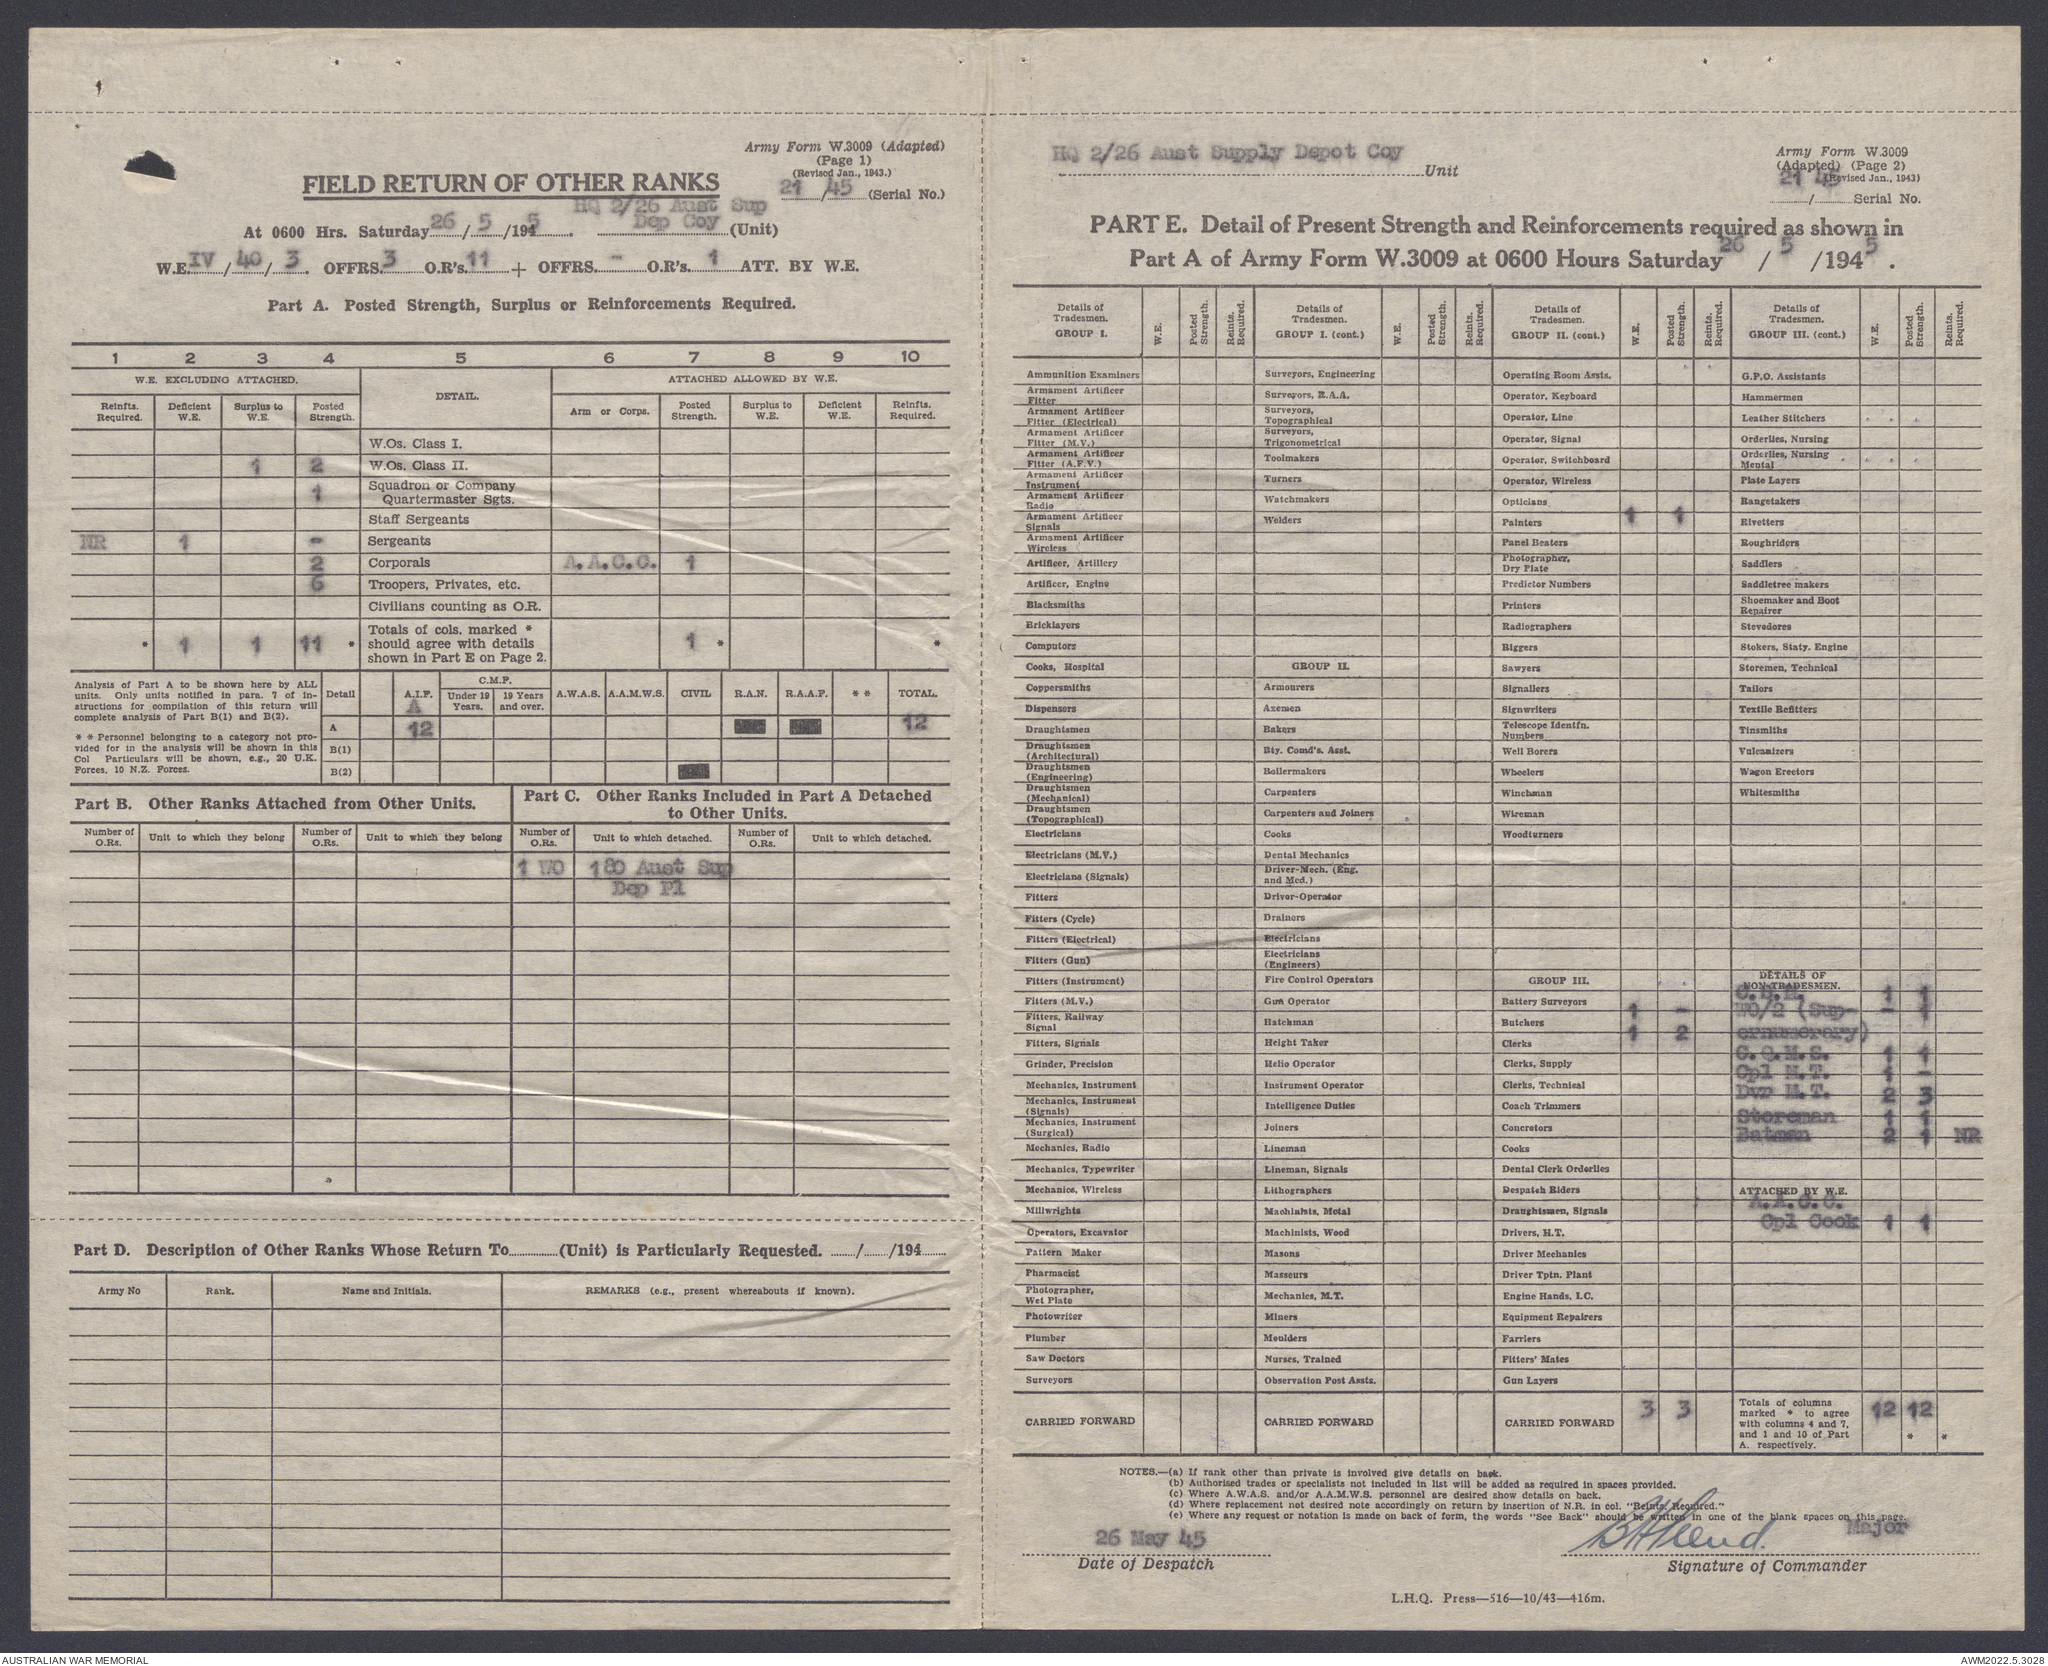 Army Form W.3009 (Adapted)
(Page 1)
(Revised Jan., 1943.)
21/45 (Serial No.)
FIELD RETURN OF OTHER RANKS
HQ 2/26 Aust Sup
Dep Coy (Unit)
At 0600 Hrs. Saturday 26/5/1945.
W.E. IV/40/3. OFFRS. 3 O.R's. 11 + OFFRS. - O.R's. 1 ATT. BY W.E.
Part A. Posted Strength, Surplus or Reinforcements Required.
1 2 3 4 5 6 7 8 9 10
W.E. EXCLUDING ATTACHED. DETAIL. ATTACHED ALLOWED BY W.E.
Reinfts. Required. Deficient W.E. Surplus to W.E. Posted Strength. Arm or Corps. Posted Strength. Surplus to W.E. Deficient W.E. Reinfts. Required.
W.Os. Class I.
1 2 W.Os. Class II.
1 Squadron or Company Quartermaster Sgts.
Staff Sergeants
NR 1 - Sergeants
2 Corporals A.A.C.C. 1
6 Troopers, Privates, etc.
Civilians counting as O.R.
* 1 1 11 * Totals of cols. marked * should agree with details shown in Part E on Page 2. 1 * *
Analysis of Part A to be shown here by ALL units. Only units notified in para. 7 of instructions for compilation of this return will complete analysis of Part B(1) and B(2).
* * Personnel belonging to a category not provided for in the analysis will be shown in this Col Particulars will be shown, e.g., 20 U.K. Forces, 10 N.Z. Forces.
Detail A.I.F. C.M.F. Under 19 Years. 19 Years and over. A.W.A.S. A.A.M.W.S. CIVIL R.A.N. R.A.A.F. * * TOTAL.
A
A 12 12
B(1)
B(2)
Part B. Other Ranks Attached from Other Units.
Part C. Other Ranks Included in Part A Detached to Other Units.
Number of O.Rs. Unit to which they belong Number of O.Rs. Unit to which they belong Number of O.Rs. Unit to which detached. Number of O.Rs. Unit to which detached.
1 WO 180 Aust Sup
Dep Pl
Part D. Description of Other Ranks Whose Return To (Unit) is Particularly Requested. / /194
Army No Rank. Name and Initials. REMARKS (e.g., present whereabouts if known).
HQ 2/26 Aust Supply Depot Coy Unit
Army Form W.3009
(Adapted) (Page 2)
(Revised Jan., 1943)
21 45
/ Serial No.
PART E. Detail of Present Strength and Reinforcements required as shown in
Part A of Army Form W.3009 at 0600 Hours Saturday 26/5/1945.
Details of Tradesmen. GROUP I. W.E. Posted Strength. Reints. Required.
Ammunition Examiners
Armament Artificer Fitter
Armament Artificer Fitter (Electrical)
Armament Artificer Fitter (M.V.)
Armament Artificer Fitter (A.F.V.)
Armament Artificer Instrument
Armament Artificer Radio
Armament Artificer Signals
Armament Artificer Wireless
Artificer, Artillery
Artificer, Engine
Blacksmiths
Bricklayers
Computors
Cooks, Hospital
Coppersmiths
Dispensers
Draughtsmen
Draughtsmen (Architectural)
Draughtsmen (Engineering)
Draughtsmen (Mechanical)
Draughtsmen (Topographical)
Electricians
Electricians (M.V.)
Electricians (Signals)
Fitters
Fitters (Cycle)
Fitters (Electrical)
Fitters (Gun)
Fitters (Instrument)
Fitters (M.V.)
Fitters, Railway Signal
Fitters, Signals
Grinder, Precision
Mechanics, Instrument
Mechanics, Instrument (Signals)
Mechanics, Instrument (Surgical)
Mechanics, Radio
Mechanics, Typewriter
Mechanics, Wireless
Millwrights
Operators, Excavator
Pattern Maker
Pharmacist
Photographer, Wet Plate
Photowriter
Plumber
Saw Doctors
Surveyors
CARRIED FORWARD
Details of Tradesmen. GROUP I. (cont.) W.E. Posted Strength. Reints. Required.
Surveyors, Engineering
Surveyors, R.A.A.
Surveyors, Topographical
Surveyors, Trigonometrical
Toolmakers
Turners
Watchmakers
Welders
GROUP II.
Armourers
Axemen
Bakers
Bty. Comd's. Asst.
Boilermakers
Carpenters
Carpenters and Joiners
Cooks
Dental Mechanics
Driver-Mech. (Eng. and Med.)
Driver-Operator
Drainers
Electricians
Electricians (Engineers)
Fire Control Operators
Gun Operator
Hatchman
Height Taker
Helio Operator
Instrument Operator
Intelligence Duties
Joiners
Lineman
Lineman, Signals
Lithographers
Machinists, Metal
Machinists, Wood
Masons
Masseurs
Mechanics, M.T.
Miners
Moulders
Nurses, Trained
Observation Post Assts.
CARRIED FORWARD
Details of Tradesmen. GROUP II. (cont.) W.E. Posted Strength. Reints. Required.
Operating Room Assts.
Operator, Keyboard
Operator, Line
Operator, Signal
Operator, Switchboard
Operator, Wireless
Opticians
Painters 1 1
Panel Beaters
Photographer, Dry Plate
Predictor Numbers
Printers
Radiographers
Riggers
Sawyers
Signallers
Signwriters
Telescope Identfn. Numbers
Well Borers
Wheelers
Winchman
Wireman
Woodturners
GROUP III.
Battery Surveyors
Butchers 1 -
Clerks 1 2
Clerks, Supply
Clerks, Technical
Coach Trimmers
Concretors
Cooks
Dental Clerk Orderlies
Despatch Riders
Draughtsmen, Signals
Drivers, H.T.
Driver Mechanics
Driver Tptn. Plant
Engine Hands, I.C.
Equipment Repairers
Farriers
Fitters' Mates
Gun Layers
CARRIED FORWARD 3 3
Details of Tradesmen. GROUP III. (cont.) W.E. Posted Strength. Reints Required.
G.P.O. Assistants
Hammermen
Leather Stitchers
Orderlies, Nursing
Orderlies, Nursing Mental
Plate Layers
Rangetakers
Rivetters
Roughriders
Saddlers
Saddletree makers
Shoemaker and Boot Repairer
Stevedores
Stokers, Staty. Engine
Storemen, Technical
Tailors
Textile Refitters
Tinsmiths
Vulcanizers
Wagon Erectors
Whitesmiths
DETAILS OF NON-TRADESMEN.
1 1
WO/2 (Sup- - 1
ernumerary)
C.Q.M.S. 1 1
Cpl M.T. 1 -
Dvr M.T. 2 3
Storeman 1 1
Batmen 2 1 NR
ATTACHED BY W.E.
A.A.C.C.
Cpl Cook 1 1
Totals of columns marked * to agree with columns 4 and 7, and 1 and 10 of Part A. respectively. 12 12 * *
NOTES.—(a) If rank other than private is involved give details on back.
(b) Authorised trades or specialists not included in list will be added as required in spaces provided.
(c) Where A.W.A.S. and/or A.A.M.W.S. personnel are desired show details on back.
(d) Where replacement not desired note accordingly on return by insertion of N.R. in col. "Reints. Required."
(e) Where any request or notation is made on back of form, the words "See Back" should be written in one of the blank spaces on this page.
26 May 45 Major
Date of Despatch Signature of Commander
L.H.Q. Press—516—10/43—416m.
AUSTRALIAN WAR MEMORIAL AWM2022.5.3028